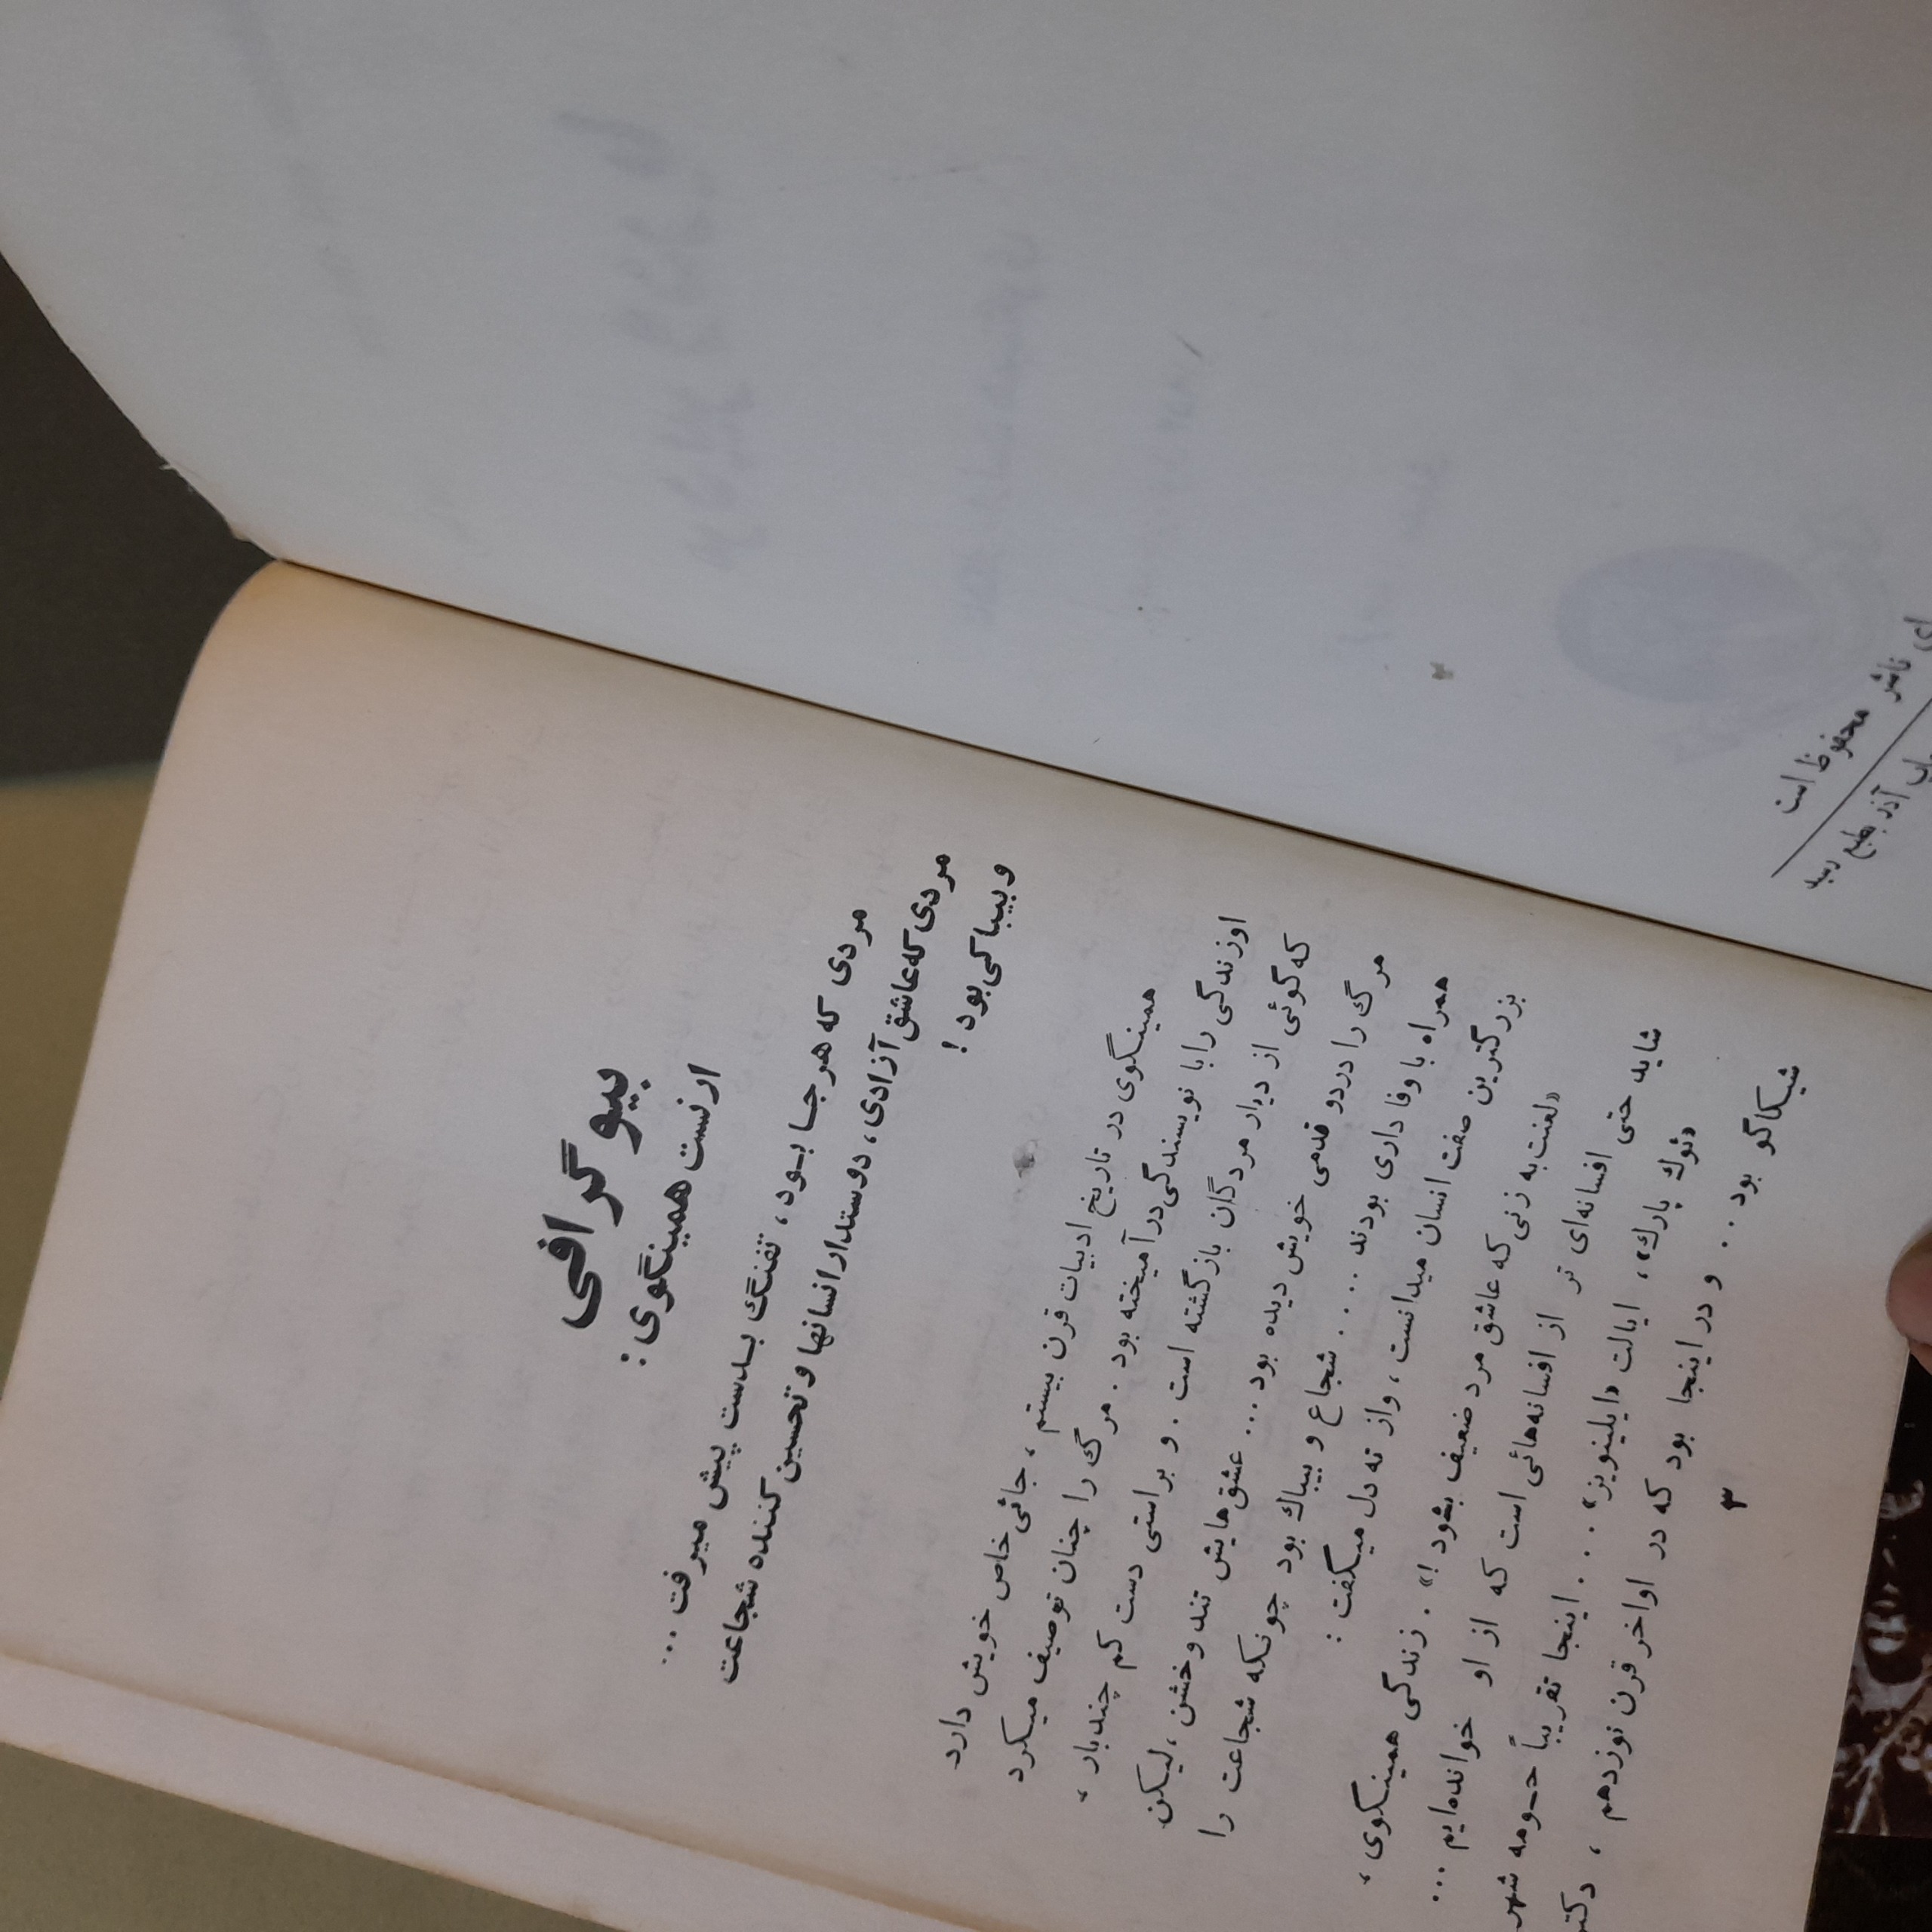 ای ناشر محفوظ است
آذر بطبع رسید
بیوگرافی
ارنست همینگوی :
مردی که هر جا بود ، تفنگ بدست پیش میرفت ...
مردی که عاشق آزادی ، دوستدار انسانها و تحسین کننده شجاعت
و بیباکی بود !
همینگوی در تاریخ ادبیات قرن بیستم ، جائی خاص خویش دارد
او زندگی را با نویسندگی در آمیخته بود . مرگ را چنان توصیف میکرد
که گوئی از دیار مردگان بازگشته است . و براستی دست کم چند بار ،
مرگ را در دو قدمی خویش دیده بود ... عشق هایش تند و خشن ، لیکن
همراه با وفاداری بودند ... . شجاع و بیباك بود چونکه شجاعت را
بزرگترین صفت انسان میدانست ، و از ته دل میگفت :
«لعنت به زنی که عاشق مرد ضعیف بشود !» . زندگی همینگوی ،
شاید حتی افسانه‌ای تر از افسانه‌هائی است که از او خوانده‌ایم ...
«ئوك پارك» ، ایالت «ایلینویز» ... . اینجا تقریباً حومه شهر
شیکاگو بود ... و در اینجا بود که در اواخر قرن نوزدهم ، دکتر
۳